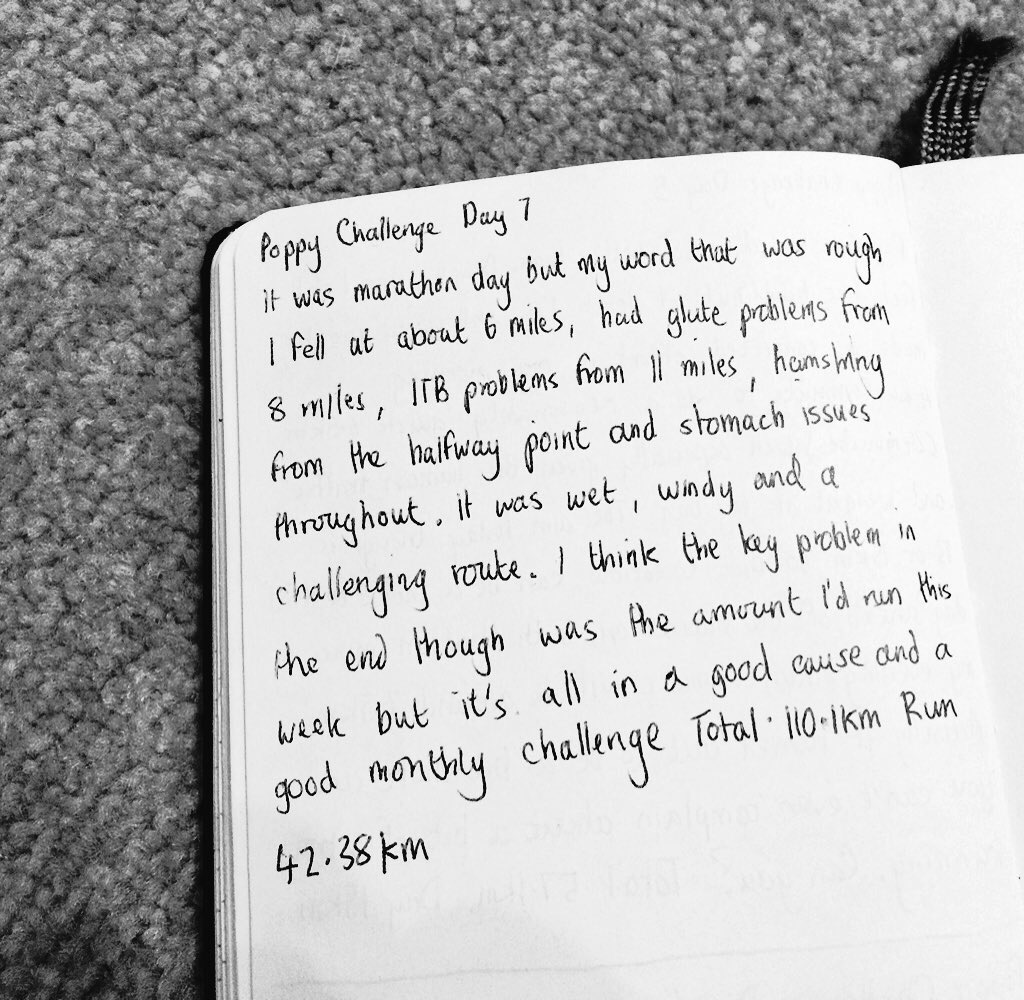 Poppy Challenge Day 7
it was marathon day but my word that was rough
I fell at about 6 miles, had glute problems from
8 miles, ITB problems from 11 miles, hamstring
from the halfway point and stomach issues
throughout. it was wet, windy and a
challenging route. I think the key problem in
the end though was the amount I'd run this
week but it's all in a good cause and a
good monthly challenge Total 110.1km Run
42.38km